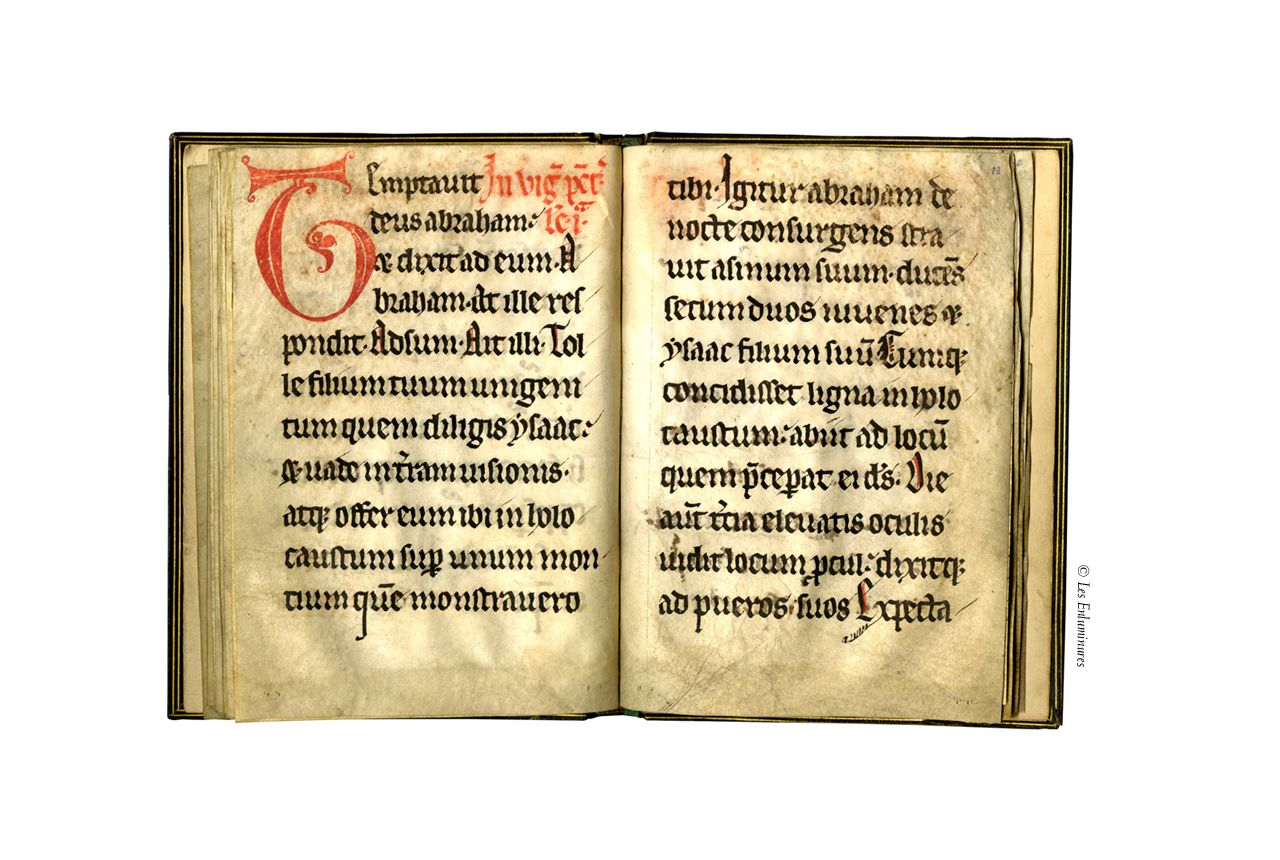 Temptauit In vig̃ p̃ct̃
deus abraham: lc̃. i.
& dixit ad eum. A
braham. At ille res
pondit. Adsum. Ait illi. Tol
le filium tuum unigeni
tum quem diligis ysaac:
& uade in tr̃ram uisionis.
atq; offer eum ibi in holo
caustum sup̱ unum mon
tium quẽ monstrauero
13
tibi. Igitur abraham de
nocte consurgens stra
uit asinum suum. ducẽs
secum duos iuuenes &
ysaac filium suũ Cumq;
concidisset ligna in holo
caustum: abiit ad locũ
quem p̃cep̱at ei ds̃. Die
aũt tr̃cia eleuatis oculis
uidit locum p̱cul: dixitq;
ad pueros suos Expecta
© Les Enluminures